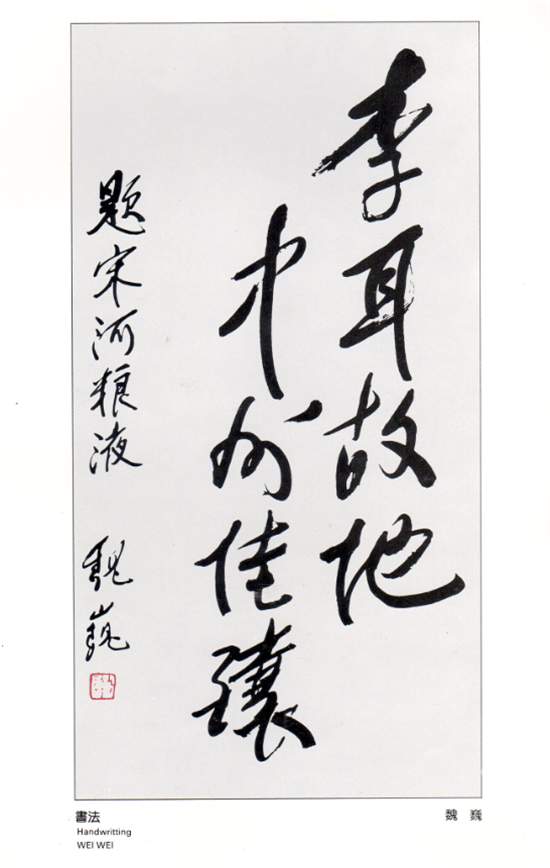 李耳故地
中州佳釀
题宋河粮液 魏巍
書法
Handwritting
WEI WEI
魏 巍